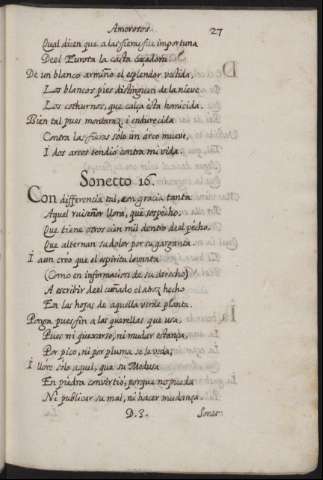 Amorosos.
27
Qual dicen que a las fieras fue importuna
Deel Eurota la casta caçadora
De un blanco armiño el esplendor vestida,
Los blancos pies distinguen de la nieve
Los cothurnos, que calça esta homicida.
Bien tal pues montaraz, i endurecida
Contra las fieras solo un arco mueve,
I dos arcos tendió contra mi vida.
Sonetto 16.
Con differencia tal, con gracia tanta
Aquel ruiseñor llora, que sospecho,
Que tiene otros cien mil dentro deel pecho,
Que alternan su dolor por su garganta.
I aun creo que el espiritu levanta
(Como en informacion de su derecho)
A escribir deel cuñado el atroz hecho
En las hojas de aquella verde planta.
Ponga pues fin a las querellas que usa,
Pues ni quexarse, ni mudar estança,
Por pico, ni por pluma se le veda;
I llore solo aquel, que su Medusa
En piedra convertió, porque no pueda
Ni publicar su mal, ni hacer mudança
D. 3.
Sonet-